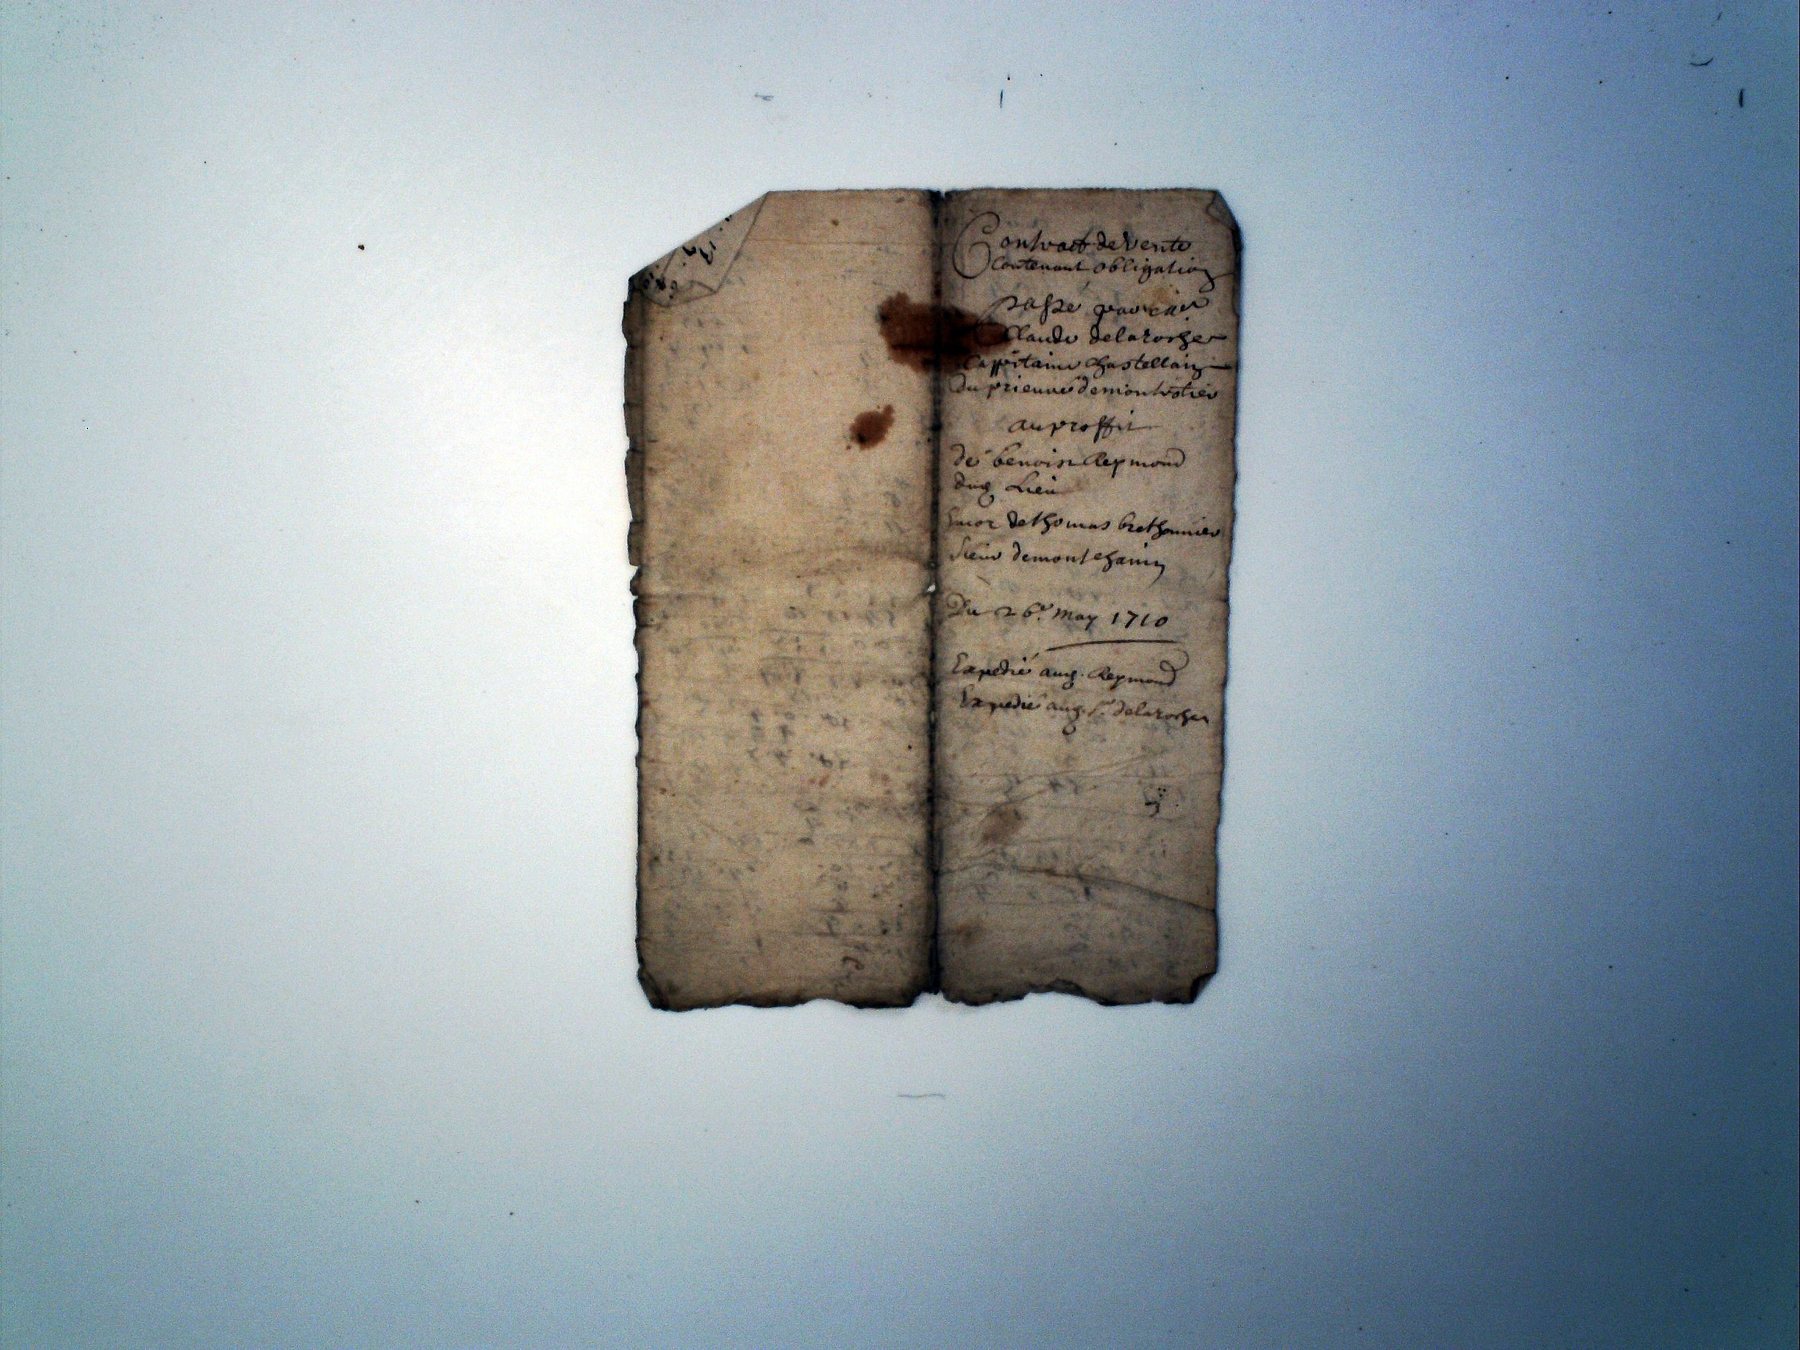 Contract de vente
contenant obligation
passé par sieur
Claude delaroche
cappitaine chastellain
du prieuré de montrotier
au proffit
de benoist Reymond
dud. Lieu
et de thomas brethonnier
sieur demontchanin
Du 26e. may 1710
Expedié aud. Reymond
Expedié aud. Sr. delaroche